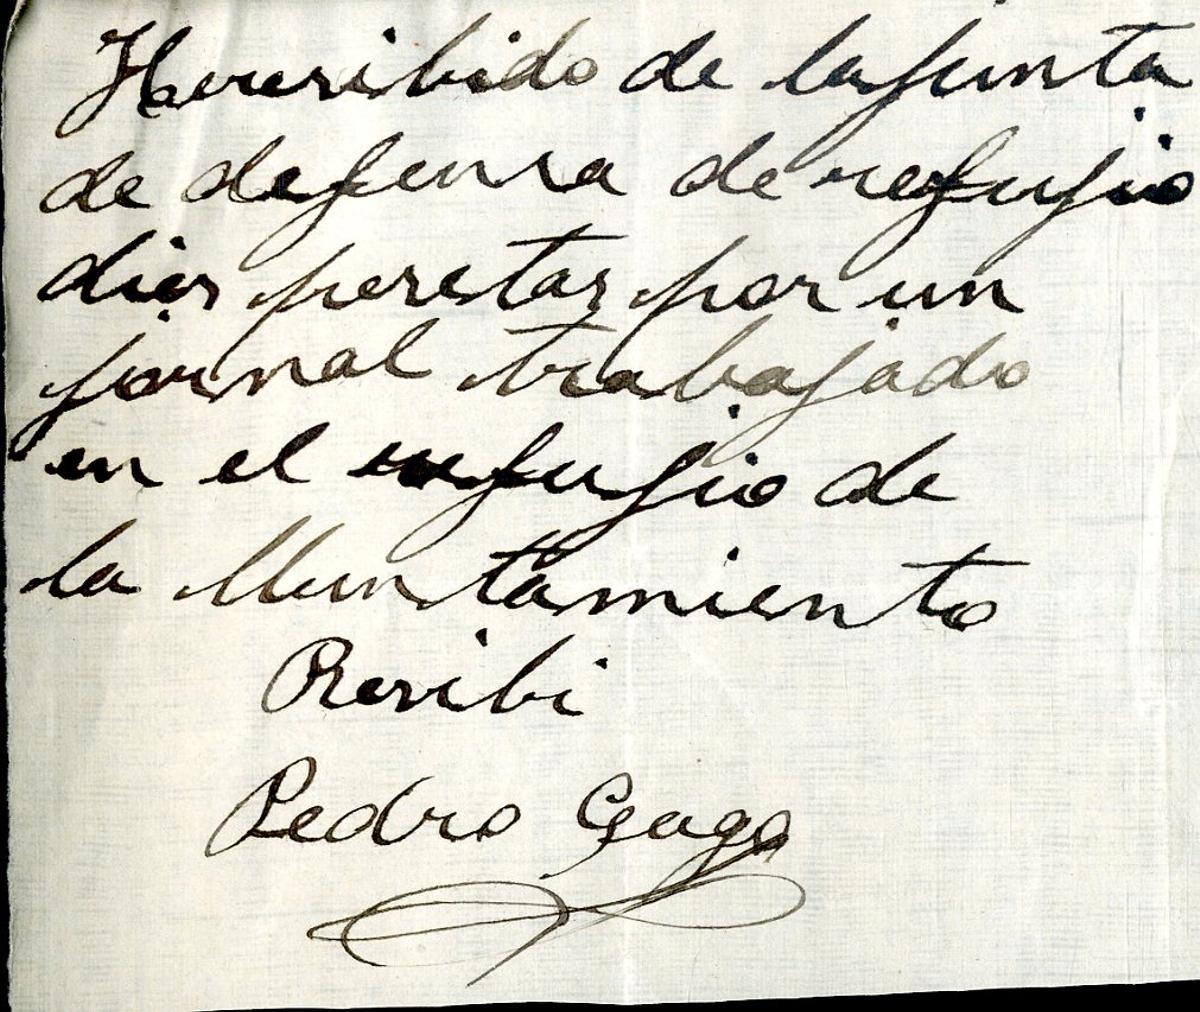 He resibido de la junta
de defensa de refujio
dies pesetas por un
jornal trabajado
en el refujio de
la Muntamiento
Resibi
Pedro Gaga